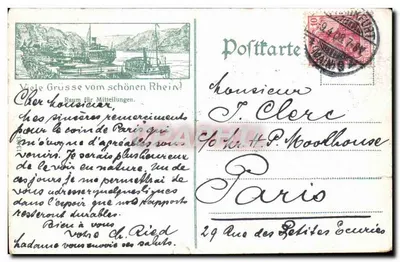 Postkarte
Viele Grüsse vom schönen Rhein!
Raum für Mitteilungen.
Cher Monsieur,
Mes sincères remerciements
pour le coin de Paris qui
m'évoque d'agréables sou
venirs. Je serais plus heureux
de le voir en nature. Un de
ces jours je me permettrai de
vous adresser quelques vues
dans l'espoir que nos rapports
resteront durables.
Bien à vous
votre Ch. Ried
Madame vous envoie ses saluts.
Monsieur
J. Clerc
c/o Mr. H. P. Moolhouse
Paris
29 Rue des Petites Ecuries